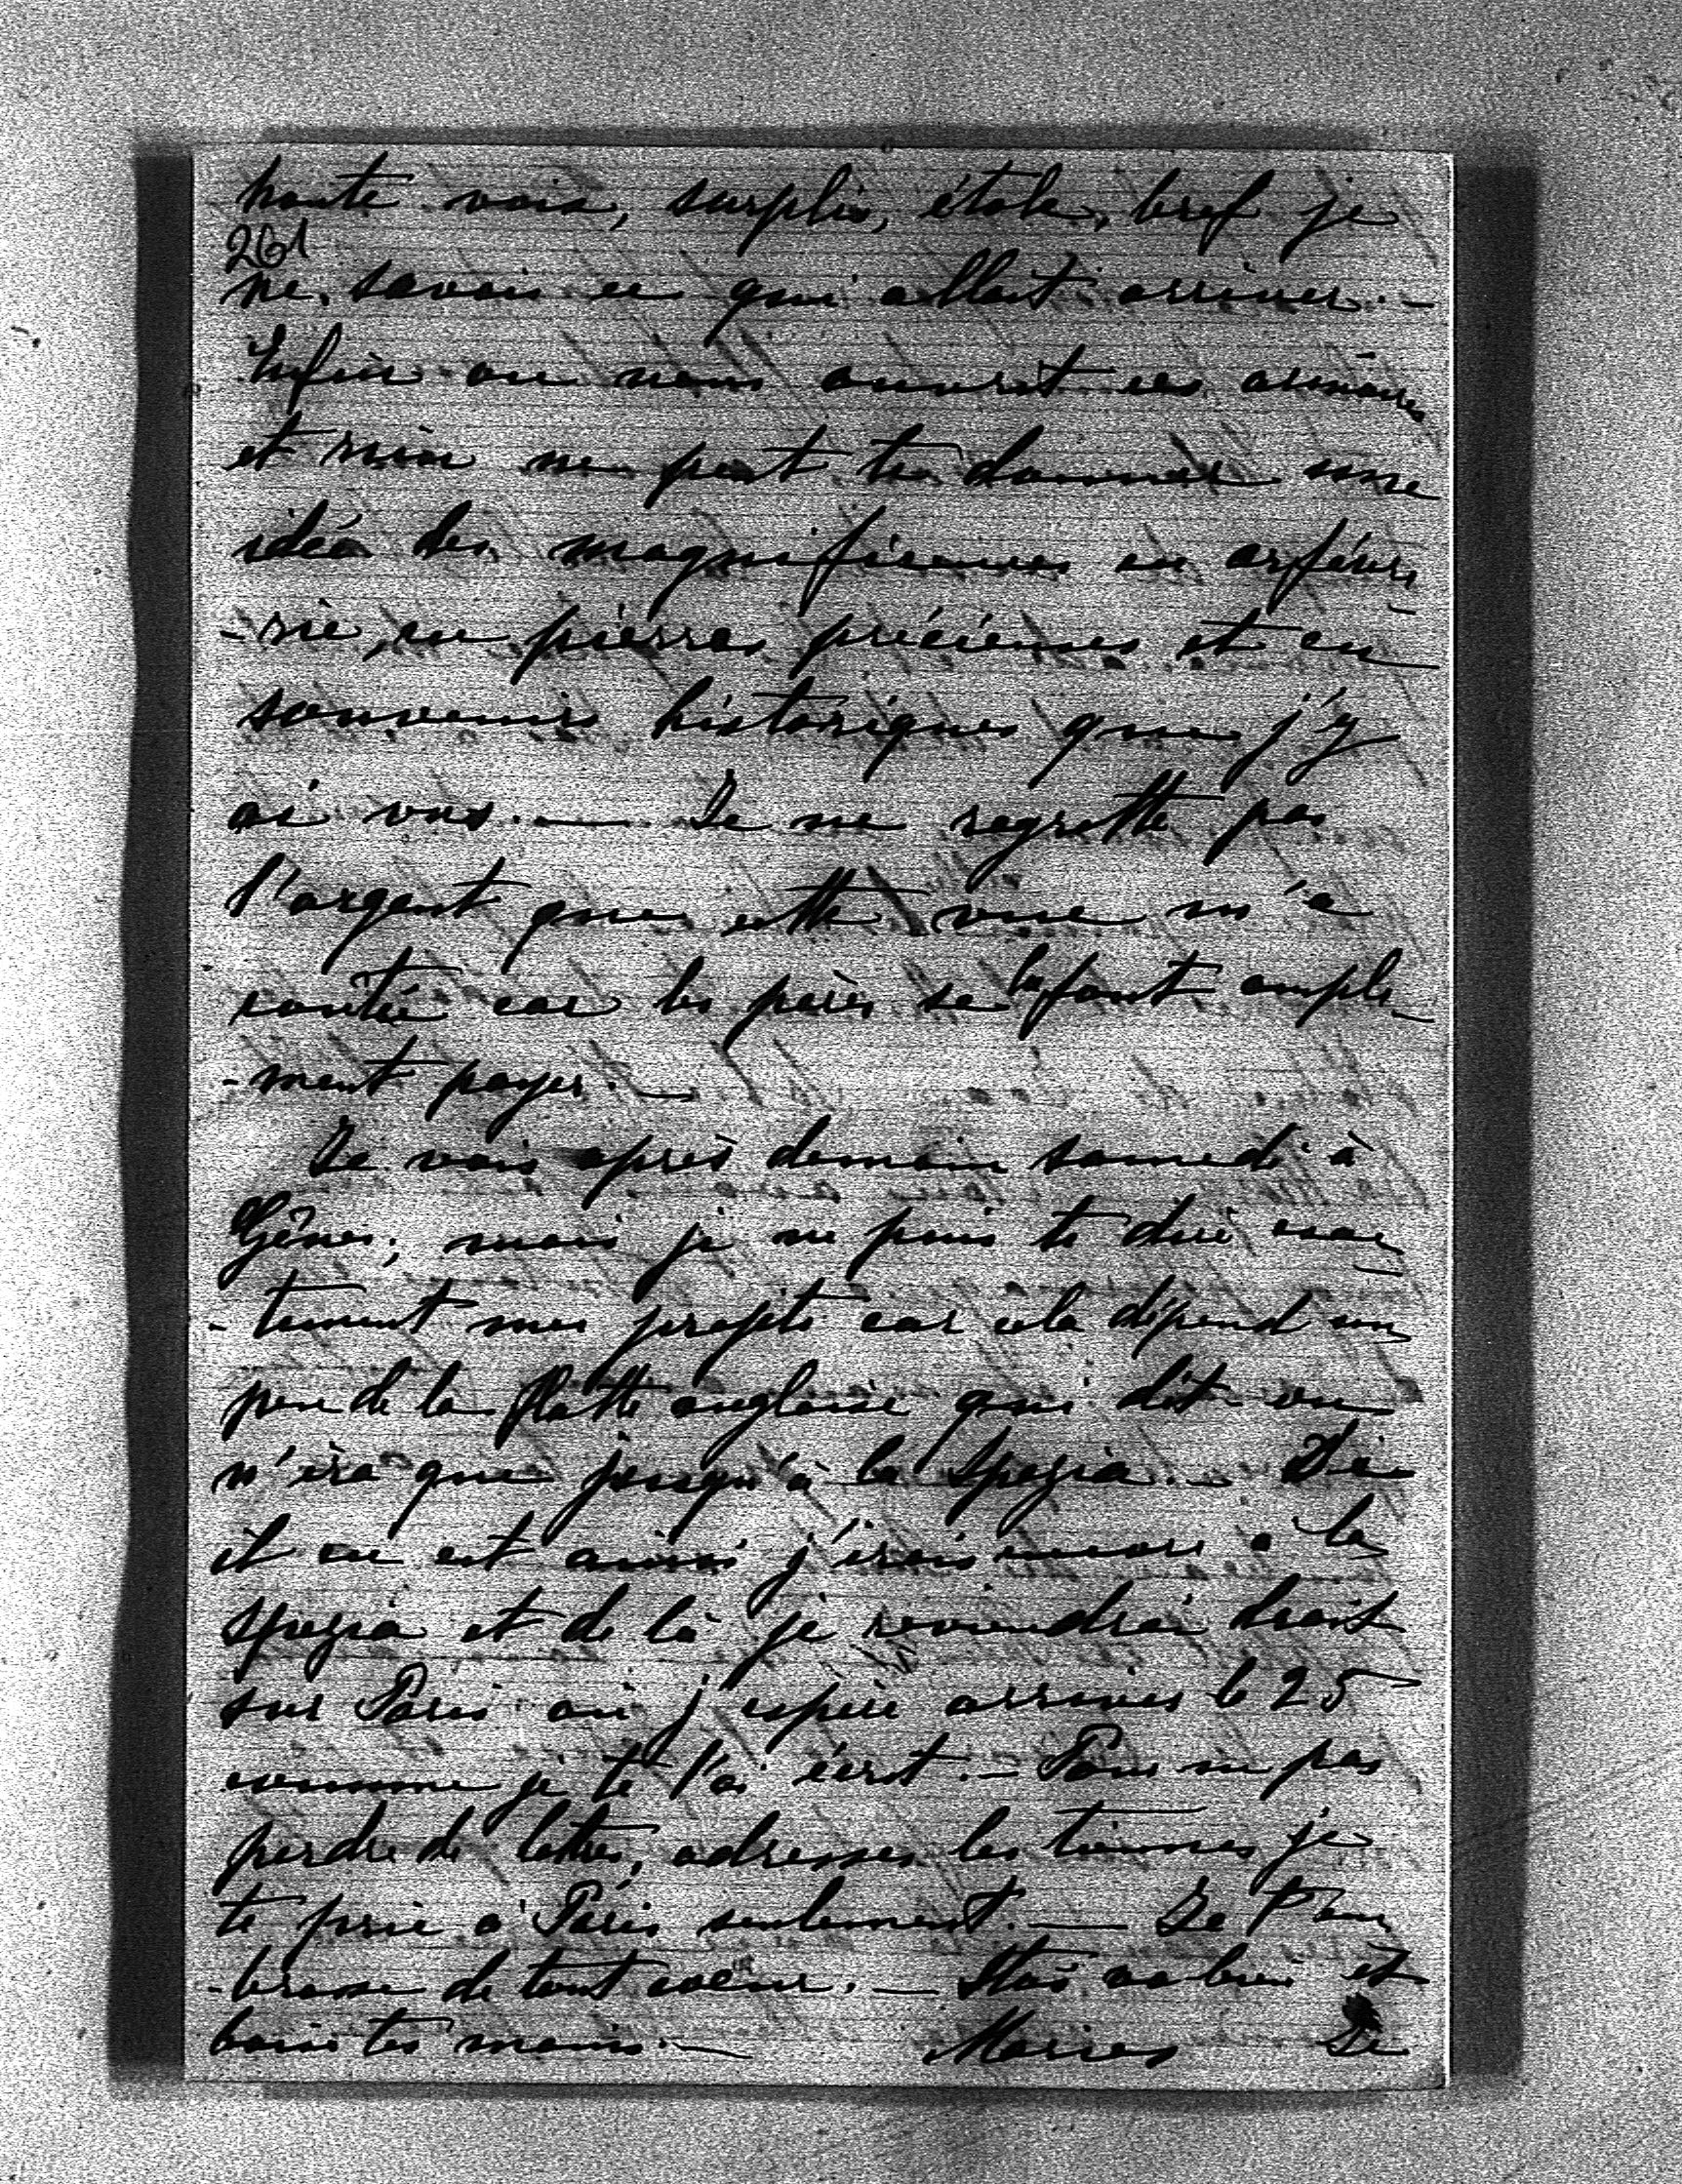 haute voix, surplis, étole, bref je
261
ne savais ce qui allait arriver. —
Enfin on nous ouvrit ces armoires
et rien ne peut te donner une
idée des magnificences en orfèvre
-rie, en pierres précieuses et en
souvenirs historiques que j'y
ai vus. — Je ne regrette pas
l'argent que cette vue m'a
coûté car les pères se la font ample-
-ment payer. —
Je vais après demain samedi à
Gênes; mais je ne puis te dire exac-
-tement mes projets car cela dépend un
peu de la flotte anglaise qui dit-on
n'ira que jusqu'à la Spezia. — Si
il en est ainsi j'irais encore à la
Spezia et de là je reviendrai droit
sur Paris où j'espère arriver le 25
comme je te l'ai écrit. — Pour ne pas
perdre de lettres, adresses les tiennes je
te prie à Paris seulement. — Je t'em
-brasse de tout coeur. — va bien et
baise tes mains. — Je